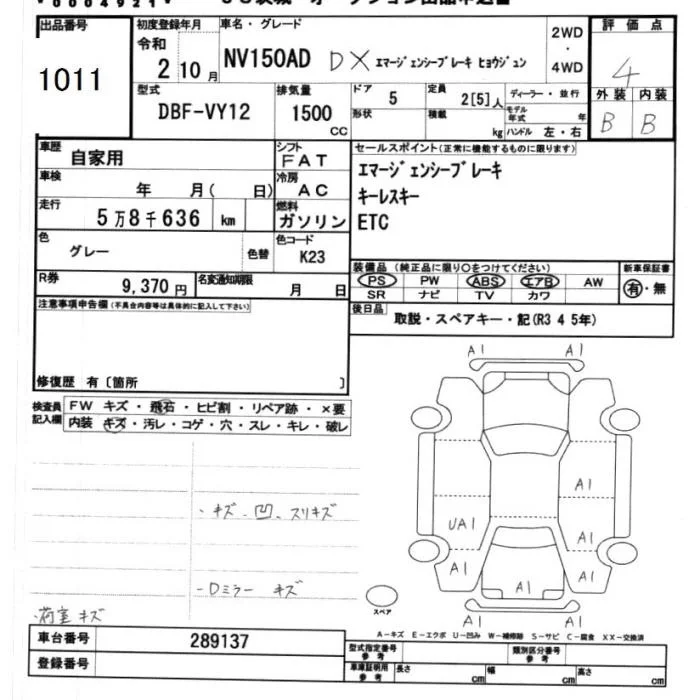 出品番号
1011
初度登録年月
令和
2 10月
車名・グレード
NV150AD DX エマージェンシーブレーキ ヒョウジュン
2WD
・
4WD
評価点
4
外装 内装
B B
型式
DBF-VY12
排気量
1500
CC
ドア
5
形状
定員
2[5]人
積載
kg
ディーラー・並行
モデル年式 年
ハンドル 左・右
車歴
自家用
シフト
FAT
車検
年 月( 日)
冷房
AC
走行
5万8千636 km
燃料
ガソリン
色
グレー
色替
色コード
K23
R券
9,370円
名変通知期限
月 日
セールスポイント(正常に機能するものに限ります)
エマージェンシーブレーキ
キーレスキー
ETC
装備品(純正品に限り○をつけてください)
PS PW ABS エアB AW
SR ナビ TV カワ
新車保証書
有・無
後日品
取説・スペアキー・記(R3 4 5年)
注意事項申告欄(不具合内容等は具体的に記入して下さい)
修復歴 有〔箇所 〕
検査員記入欄
FW キズ・飛石・ヒビ割・リペア跡・×要
内装 キズ・汚レ・コゲ・穴・スレ・キレ・破レ
・キズ・凹、スリキズ
-Dミラー キズ
・荷室キズ
A1 A1
A1
UA1
A1
A1
A1
A1
A1 A1
スペア
A-キズ E-エクボ U-凹み W-補修跡 S-サビ C-腐食 XX-交換済
車台番号
289137
登録番号
型式指定番号
参考
類別区分番号
参考
車庫証明用
参考
長さ cm
幅 cm
高さ cm